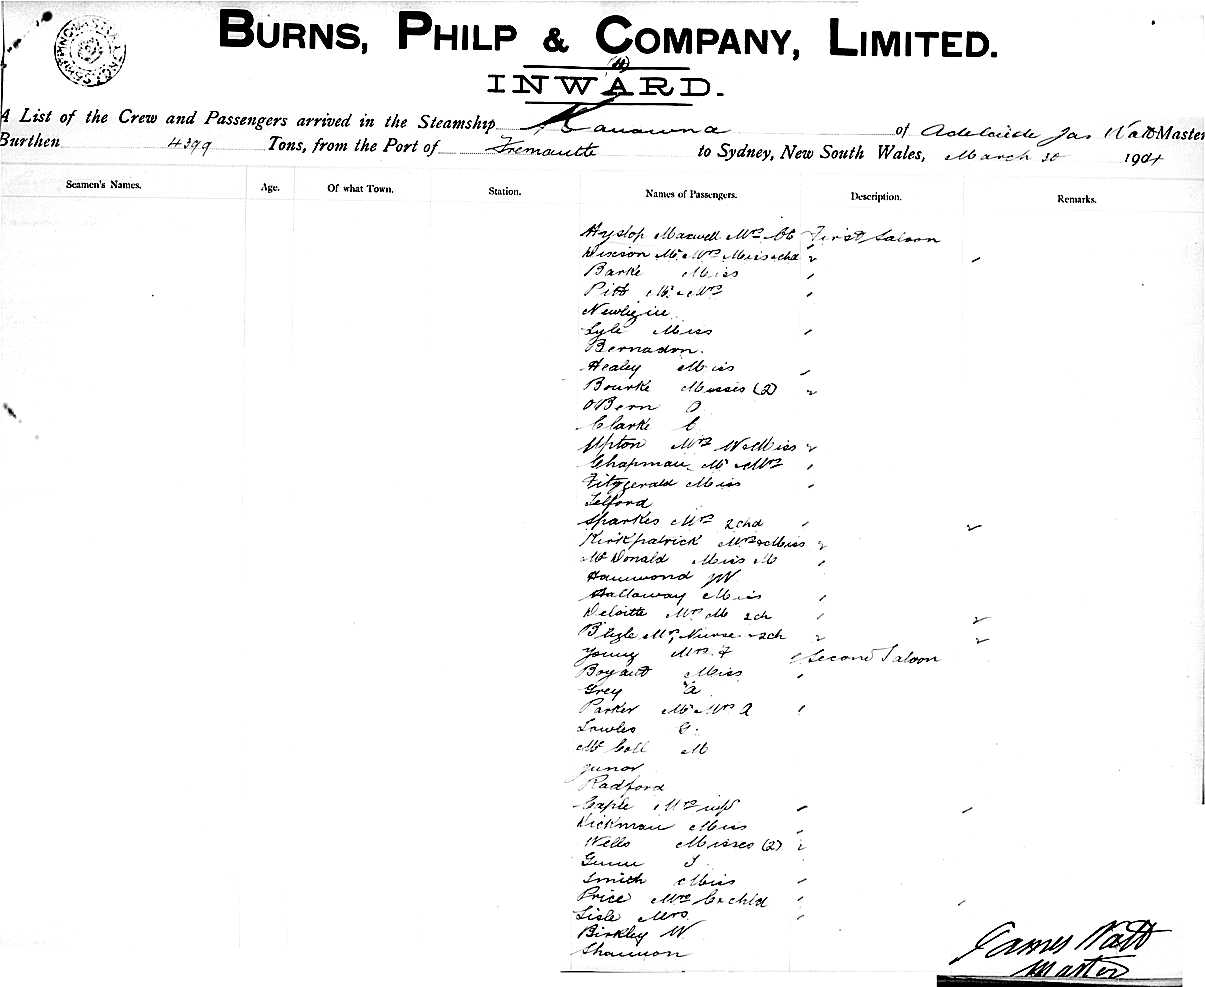 BURNS, PHILP & COMPANY, LIMITED.
INWARD.
A List of the Crew and Passengers arrived in the Steamship Kanowna of Adelaide Jas Watt Master
Burthen 4399 Tons, from the Port of Fremantle to Sydney, New South Wales, March 30 1904
Seamen's Names. Age. Of what Town. Station. Names of Passengers. Description. Remarks.
Hyslop Maxwell Mrs First Saloon
Dixson Mr & Mrs Miss & chd
Barke Miss
Pitt Mr & Mrs
Lyle Miss
Bernadon.
Healey Miss
Bourke Misses (2)
OBern O
Clarke C
Upton Mrs W & Miss
Chapman Mr & Mrs
Fitzgerald Miss
Telford
Sparkes Mrs 2 chd
Kirkpatrick Mrs & Miss
McDonald Miss M
Hammond JW
Hallaway Miss
Deloitte Mrs M 2 ch
Mrs, Nurse 2 ch
Young Mrs F Second Saloon
Bryant Miss
Grey A
Parker Mr & Mrs A
Lawles G.
McColl M
Junor
Radford
Caple Mrs inft
Dickman Miss
Wells Misses (2)
Gunn J
Smith Miss
Price Mrs C & chld
Lisle Mrs
Birkley W
Shannon
James Watt
Master